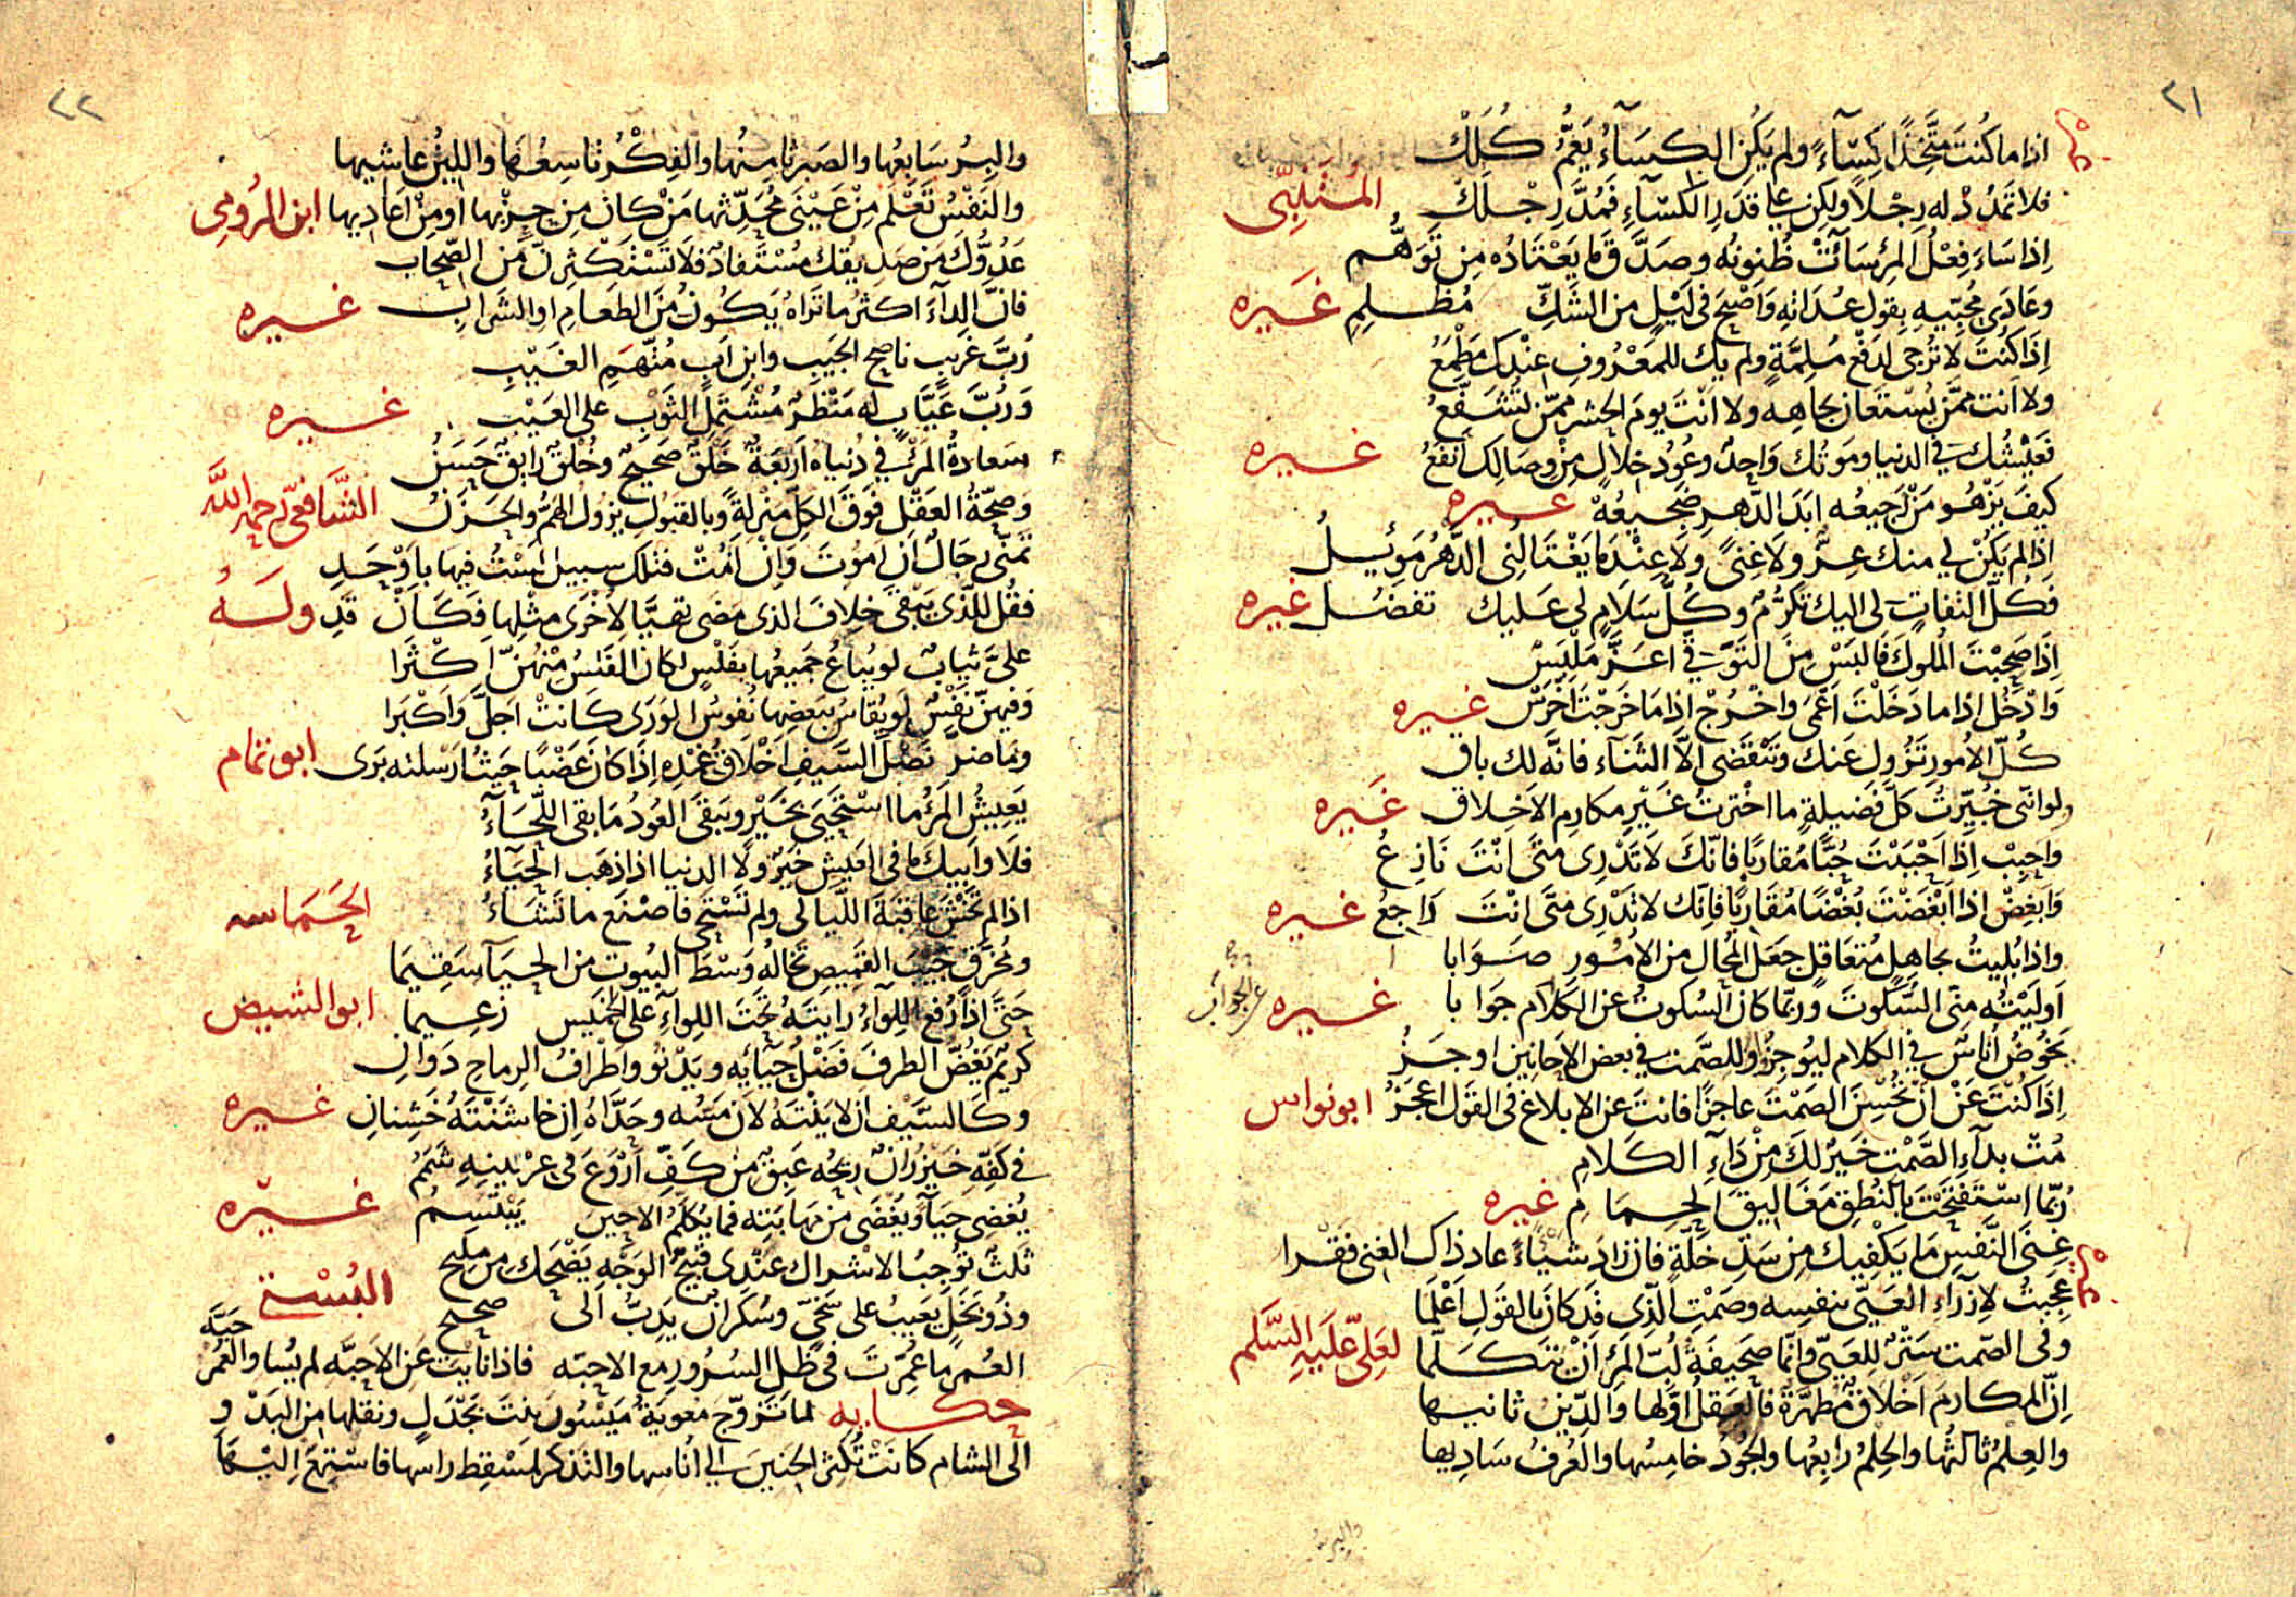 ٢١
اذا ما كُنتَ مُتَّخِذًا كِسَآءً ولم يَكُنِ الكِسَآءُ يَعُمُّ كُلَّكْ
فلا تَمْدُدْ له رِجْلاً ولكِن على قَدَرِ الكِسَآءِ فَمُدَّ رِجْلَكْ المُتَنَبّى
اِذا سَاءَ فِعْلُ المرْءِ سَآءَتْ ظُنونُه وصَدَّقَ ما يَعْتَادُه مِن تَوَهُّم
وعَادَى مُحِبّيهِ بِقولِ عُدَاتِه وَاَصْبَحَ فى لَيْلٍ من الشَكِّ مُظْلِمِ غَيره
اِذَا كُنْتَ لا تُرْجى لِدَفْعِ مُلِمَّةٍ ولم يك للمَعْرُوفِ عِنْدَكَ مَطْمَعُ
ولا اَنت ممَّن يُسْتَعان بجاهِه ولا اَنْتَ يومَ الحشرِ ممّن يُشَفَّعُ
فَعَيْشُك فى الدنيا ومَوتُك وَاحِدٌ وعُودُ خِلالٍ مِنْ وِصَالِك اَنفَعُ غيره
كيفَ يَزْهُو مَنْ رَجيعُه ابَدَ الدَّهرِ ضَجيعُهْ غيره
اِذا لم يَكُنْ لي منك عِزٌّ ولا غِنىً ولا عِنْدَ ما يَغْتَالُنِى الدَّهْرُ مَوئِلُ
فكُلُّ التفاتٍ لى اليك تكرُّمٌ وكُلُّ سَلامٍ لى عَليك تفضُلُ غيره
اِذَا صَحِبْتَ المُلوكَ فَالبَسْ مِنَ التَوَقّي اعَزَّ مَلْبَسْ
وَادْخُل اِذا ما دَخَلْتَ اَعْمَى واخْرُجْ اذا مَا خَرَجْتَ اَخْرَسْ غيره
كُلُّ الاُمورِ تَزُول عَنك وتَنْقَضى الاَّ الثَنآء فانَّه لك باق
ولو انّى خُيّرتُ كلَّ فَضيلةٍ ما اخترتُ غَيْرِ مكارِم الاَخلاق غَيره
واحبِبْ اِذَا اَحْبَبْتَ حُبًّا مُقاربًا فانّكَ لا تَدْرى متَى اَنْتَ نَازِعُ
وَابغِضْ اذا اَبْغَضْتَ بُغْضًا مُقَاربًا فانّك لا تَدْرِى متَّى انْتَ رَاجعُ غيره
واذا بُليتُ بجاهِلٍ مُتغافِلٍ جعَل المُحالَ من الاُمُورِ صَوَابا
اَولَيْتُه منّى السُّكوتَ وربّما كان السُكوتُ عن الكلام جَوَابا غيره
عن الجواب
يَخُوضُ اُناسٌ في الكلام ليُوجِزُوا وللصَّمت في بعض الاَحايين اوجَزُ
اِذَا كُنْتَ عَنْ اَنْ تُحْسِنَ الصَمْتَ عاجِزًا فانتَ عن الابلاغ فى القَول اعجَزُ ابو نواس
مُتْ بدآءِ الصَّمْتِ خَيرٌ لكَ مِنْ دَآءِ الكَلامِ
رُبّما استَفتَحْتَ بالنُطقِ مَغَاليقَ الحِمَامِ غيره
غِنَى النَّفسِ مَا يَكْفيك مِن سَدِّ خَلَّةٍ فان زادَ شيْاءً عاد ذاك الغنى فَقْرا
عَجِبتُ لِاِزرَآءِ العَيِىّ بنفسِه وصَمْتِ الَّذِى قَد كانَ بالقَولِ اَعْلَمَا
وفى الصّمت سَتْرٌ لِلعَيِىّ وانّما صَحيفَةُ لُبّ المَرْءِ اَنْ يَتَكَلّما لعَلىّ عَلَيهِ السَّلم
اِنّ المكارمَ اَخْلاقٌ مُطهَّرَةٌ فالعَقلُ اوَّلها وَالدّينُ ثانيها
والعِلمُ ثالثُها والحِلمُ رابِعُها والجُودُ خامِسُها والعُرفُ سَادِيها
والبرُّ
٢٢
والبِرُ سَابِعُها والصَبر ثامِنُها والفِكْرُ تاسِعُها واللينُ عاشيها
والنَفْسُ تَعْلَم مِنْ عَيْنَى مُحَدِّثها مَنْ كان مِن حِزْبِها او مِنْ اَعَادِيها ابن الرُومى
عَدُوُّكَ مَن صَديقُك مُسْتَفادٌ فلا تَسْتَكْثِرَنَّ مَن الصِّحاب
فانّ الدآءَ اكثرُ ما تَراهُ يَكُونُ مَنَ الطعامِ اوالشَرابِ غيره
رُبَّ غَريبٍ ناصح الجَيبِ وابنِ اَبٍ مُتّهَمِ الغَيبِ
وَرُبَّ عَيَّابٍ له مَنْظَرٌ مُشْتَمِلُ الثَوْبِ على العَيْبِ غيره
سَعادةُ المَرْءِ في دُنياه اَربَعَةٌ خَلْقٌ صَحيحٌ وخُلْقٌ رايقٌ حَسَنُ
وَصِحَّةُ العَقْلِ فَوقَ الكلِّ مَنْزِلةً وبالقَبُولِ يَزُول الهَمُّ والحَزَنُ الشَّافعى رحمه اللّه
تَمنّى رِجَالٌ ان اَموُتَ وَاِنْ اَمُتْ فتلك سبيلٌ لَسْتُ فيها باَوْحَدِ
فقُل للّذى يَبْقى خِلافَ الذى مضى تهيَّا لِاُخْرَى مِثْلِها فَكَاَنْ قَدِ ولَهُ
علىَّ ثيابٌ لو يُباعُ جَميعُها بفَلْسٍ لكان الفَلسُ مِنْهُنّ اكْثَرا
وَفيهنّ نفْسٌ لو يُقاسُ ببَعضِها نُفوسُ الوَرَى كَانَتْ اَجلَّ وَاَكْبَرا
وما ضرّ نَصْلَ السَّيفِ اَخْلاقُ غِمْدِه اِذا كان عَضْبًا حَيثُ ارْسلته بَرَى ابو تمّام
يَعِيشُ المَرءُ ما اسْتَحْيَى بخَيْرٍ ويَبقَى العُودُ مَا بقى اللّحَآءُ
فلا وابيكَ ما فى العَيشِ خَيْرٌ ولا الدنيا اذا ذهَب الحيَآءُ
اذا لم تَخْشَ عاقِبَةَ اللّيالى ولم تَسْتَحْىِ فاصْنَع ما تَشَاءُ الحَمَاسه
ومُخَرَّقٍ جَيبَ القَميصِ تَخَالُه وَسْطَ البُيوتِ من الحَيآءِ سَقيمَا
حَتَّى اِذَا رُفعَ اللِواءُ رايتَه تَحْتَ اللِوآءِ على الخَميس زَعِيما ابو الشيص
كريمٌ يَغُضُّ الطرفَ فَضْلُ حَيَآئِه ويَدْنُو واَطْرافُ الرِماحِ دَوانِ
وكَالسَّيْف ان لايَنْتَه لانَ مَسُّه وحَدَّاهُ اِن خاشَنْتَهُ خَشِنانِ غيره
فى كَفّهِ خَيزرانٌ ريحُه عَبِقٌ مِن كَفّ اَرْوَعَ فى عِرْنِينِهِ شَمَمُ
يُغضى حَيَآءً ويُغْضَى من مَهابَتِه فما يُكلّمُ الا حينَ يَبْتَسِمُ غيره
ثَلثٌ تُوجِبُ الاشراك عندى قَبيحُ الوَجْهِ يَضْحَك مِن مليح
وذُو بَخَلٍ يَعيبُ على سَخىٍّ وسَكرانٌ يَدِبُّ الى صحيح البُسْتى
العُمرُ ما عُمِّرتَ فى ظِلِّ السُرُورِ مع الاحِبّه فاذا نايتَ عن الاَحِبّه لم يُساو العُمر حَبَّه
حكايه لما تَزوّج معويَةُ مَيْسُونَ بنتَ بَحْدَلٍ ونقلها من البَدْو
الى الشام كانَتْ تُكثِرُ الحَنينَ الى اُناسها والتذكر لمسْقِط راسها فاسْتمَعَ اِليْها